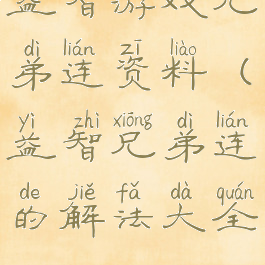 益智游戏兄
dì lián zī liào
弟连资料（
yì zhì xiōng dì lián
益智兄弟连
de jiě fǎ dà quán
的解法大全